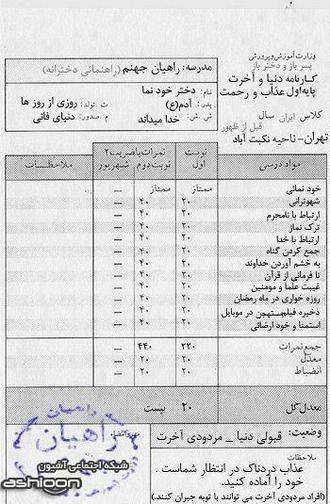 وزارت آموزش و پرورش
پسر باز و دختر باز
کارنامه دنیا و آخرت
پایه اول عذاب و رحمت
کلاس ایران سال
قبل از ظهور
تهران-ناحیه نکبت آباد
مدرسه: راهیان جهنم (راهنمائی دخترانه)
نام: دختر خود نما
پدر: آدم(ع) ت. تولد: روزی از روز ها
ش. ش: خدا میداند م. صدور: دنیای فانی
مواد درسی نوبت اول نمرات با ضریب۲ نوبت دوم شهریور ملاحظات
خود نمائی ممتاز ممتاز —
شهوترانی ۲۰ ۴۰ —
ارتباط با نامحرم ۲۰ ۴۰ —
ترک نماز ۲۰ ۴۰ —
ارتباط با خدا ۲۰ ۴۰ —
جمع کردن گناه ۲۰ ۴۰ —
به خشم آوردن خداوند ۲۰ ۴۰ —
نا فرمانی از قرآن ۲۰ ۴۰ —
غیبت علما و مومنین ۲۰ ۴۰ —
روزه خواری در ماه رمضان ۲۰ ۴۰ —
ذخیره فیلم مستهجن در موبایل ۲۰ ۴۰ —
استمنا و خود ارضائی ۲۰ ۴۰ —
جمع نمرات ۲۲۰ ۴۴۰ —
معدل ۲۰ ۲۰ —
انضباط ۲۰ ۲۰ —
معدل کل ۲۰ بیست
وضعیت: قبولی دنیا _ مردودی آخرت
ملاحظات
عذاب دردناک در انتظار شماست .
خود را آماده کنید.
(افراد مردودی آخرت می توانند با توبه جبران کنند)
راهیان
راهیان
شبکه اجتماعی آشیون
ashioon